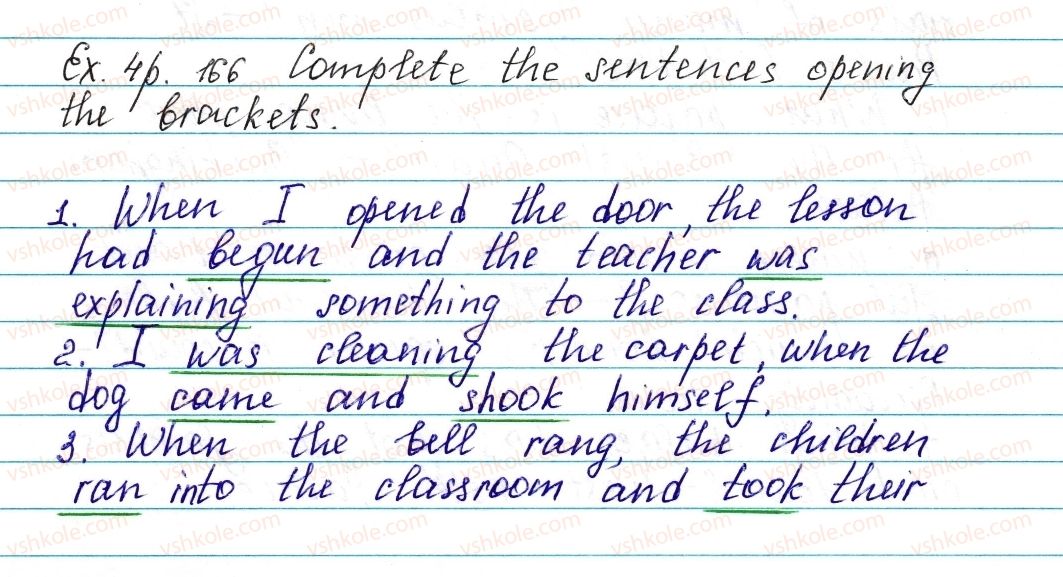 Ex. 4 p. 166 Complete the sentences opening
the brackets.
1. When I opened the door, the lesson
had begun and the teacher was
explaining something to the class.
2. I was cleaning the carpet, when the
dog came and shook himself.
3. When the bell rang, the children
ran into the classroom and took their